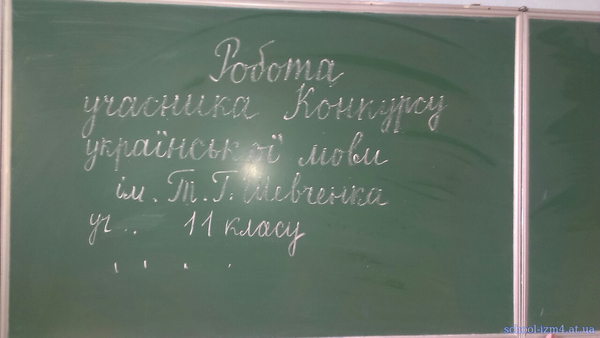 Робота
учасника Конкурсу
української мови
ім. Т. Г. Шевченка
уч .. 11 класу
school-izm4.at.ua